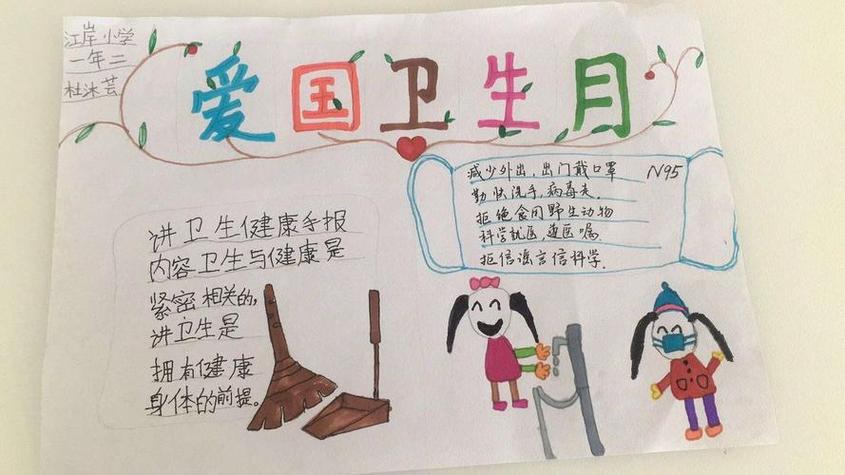 江岸小学
一年二
杜沐芸
爱国卫生月
减少外出,出门戴口罩
N95
勤快洗手,病毒去.
拒绝食用野生动物
科学就医,遵医嘱
拒信谣言信科学.
讲卫生健康手报
内容卫生与健康是
紧密相关的,
讲卫生是
拥有健康
身体的前提。